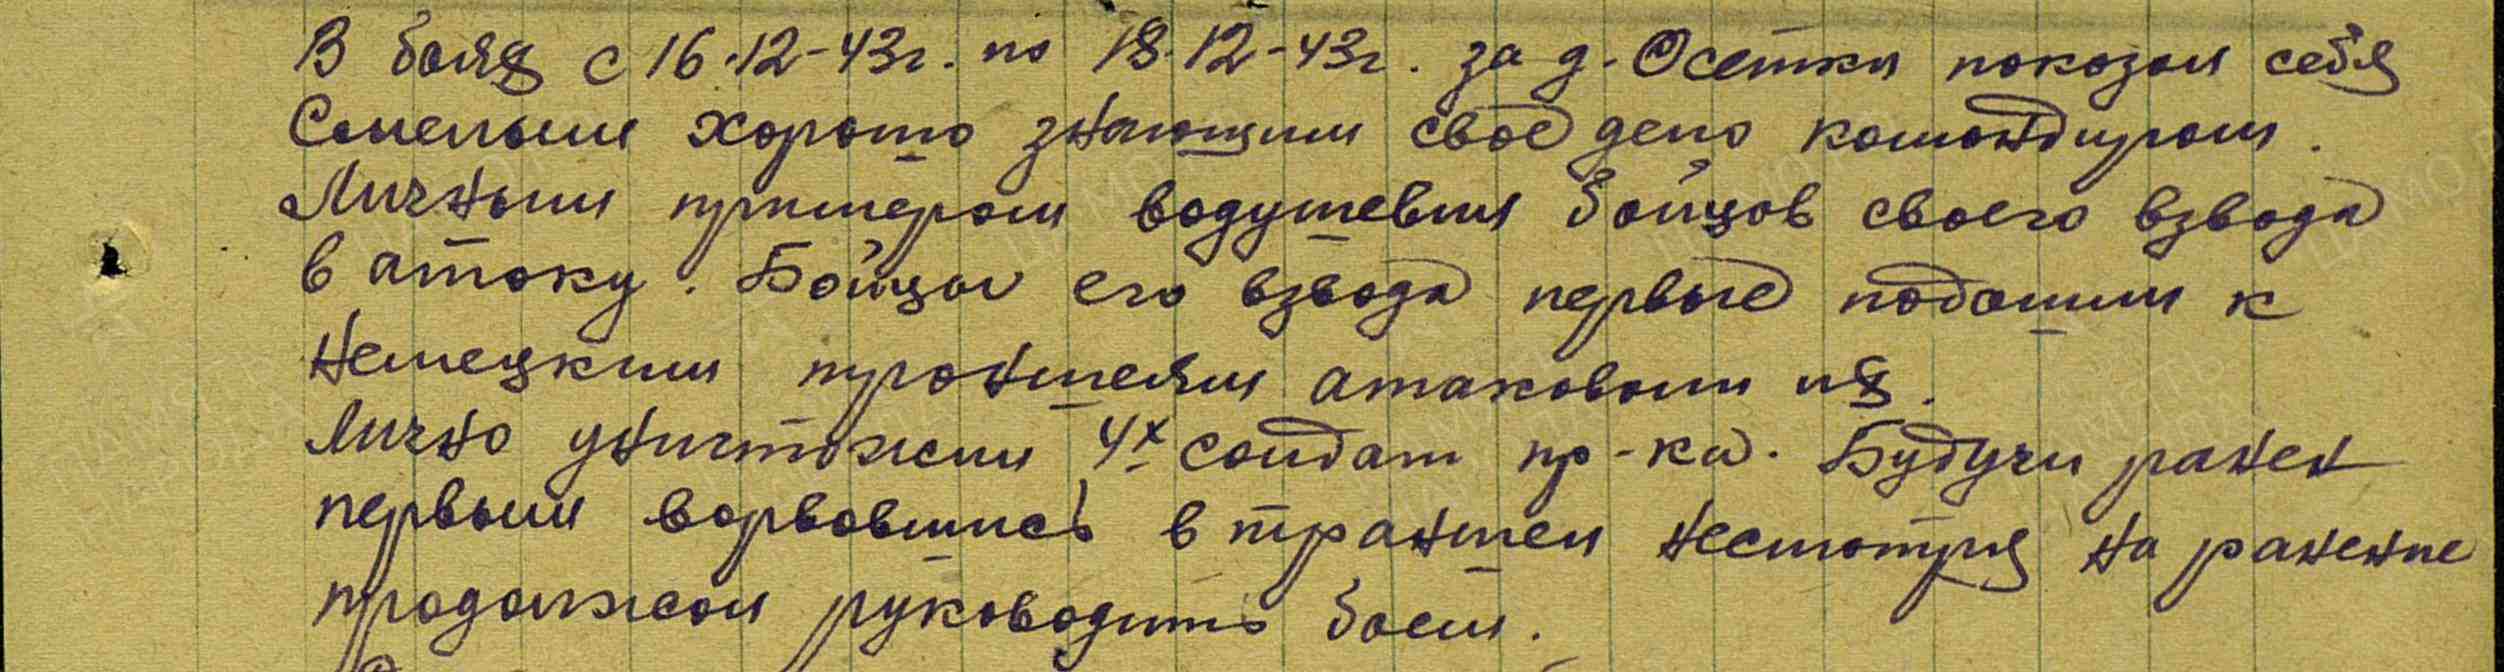 В боях с 16.12-43г. по 18.12-43г. за д. Осетки показал себя
Смелым хорошо знающим свое дело командиром.
Личным примером водушевил бойцов своего взвода
в атаку. Бойцы его взвода первые подошли к
немецким траншеям атаковали их.
Лично уничтожил 4х солдат пр-ка. Будучи ранен
первым ворвовшись в траншеи несмотря на ранение
продолжал руководить боем.